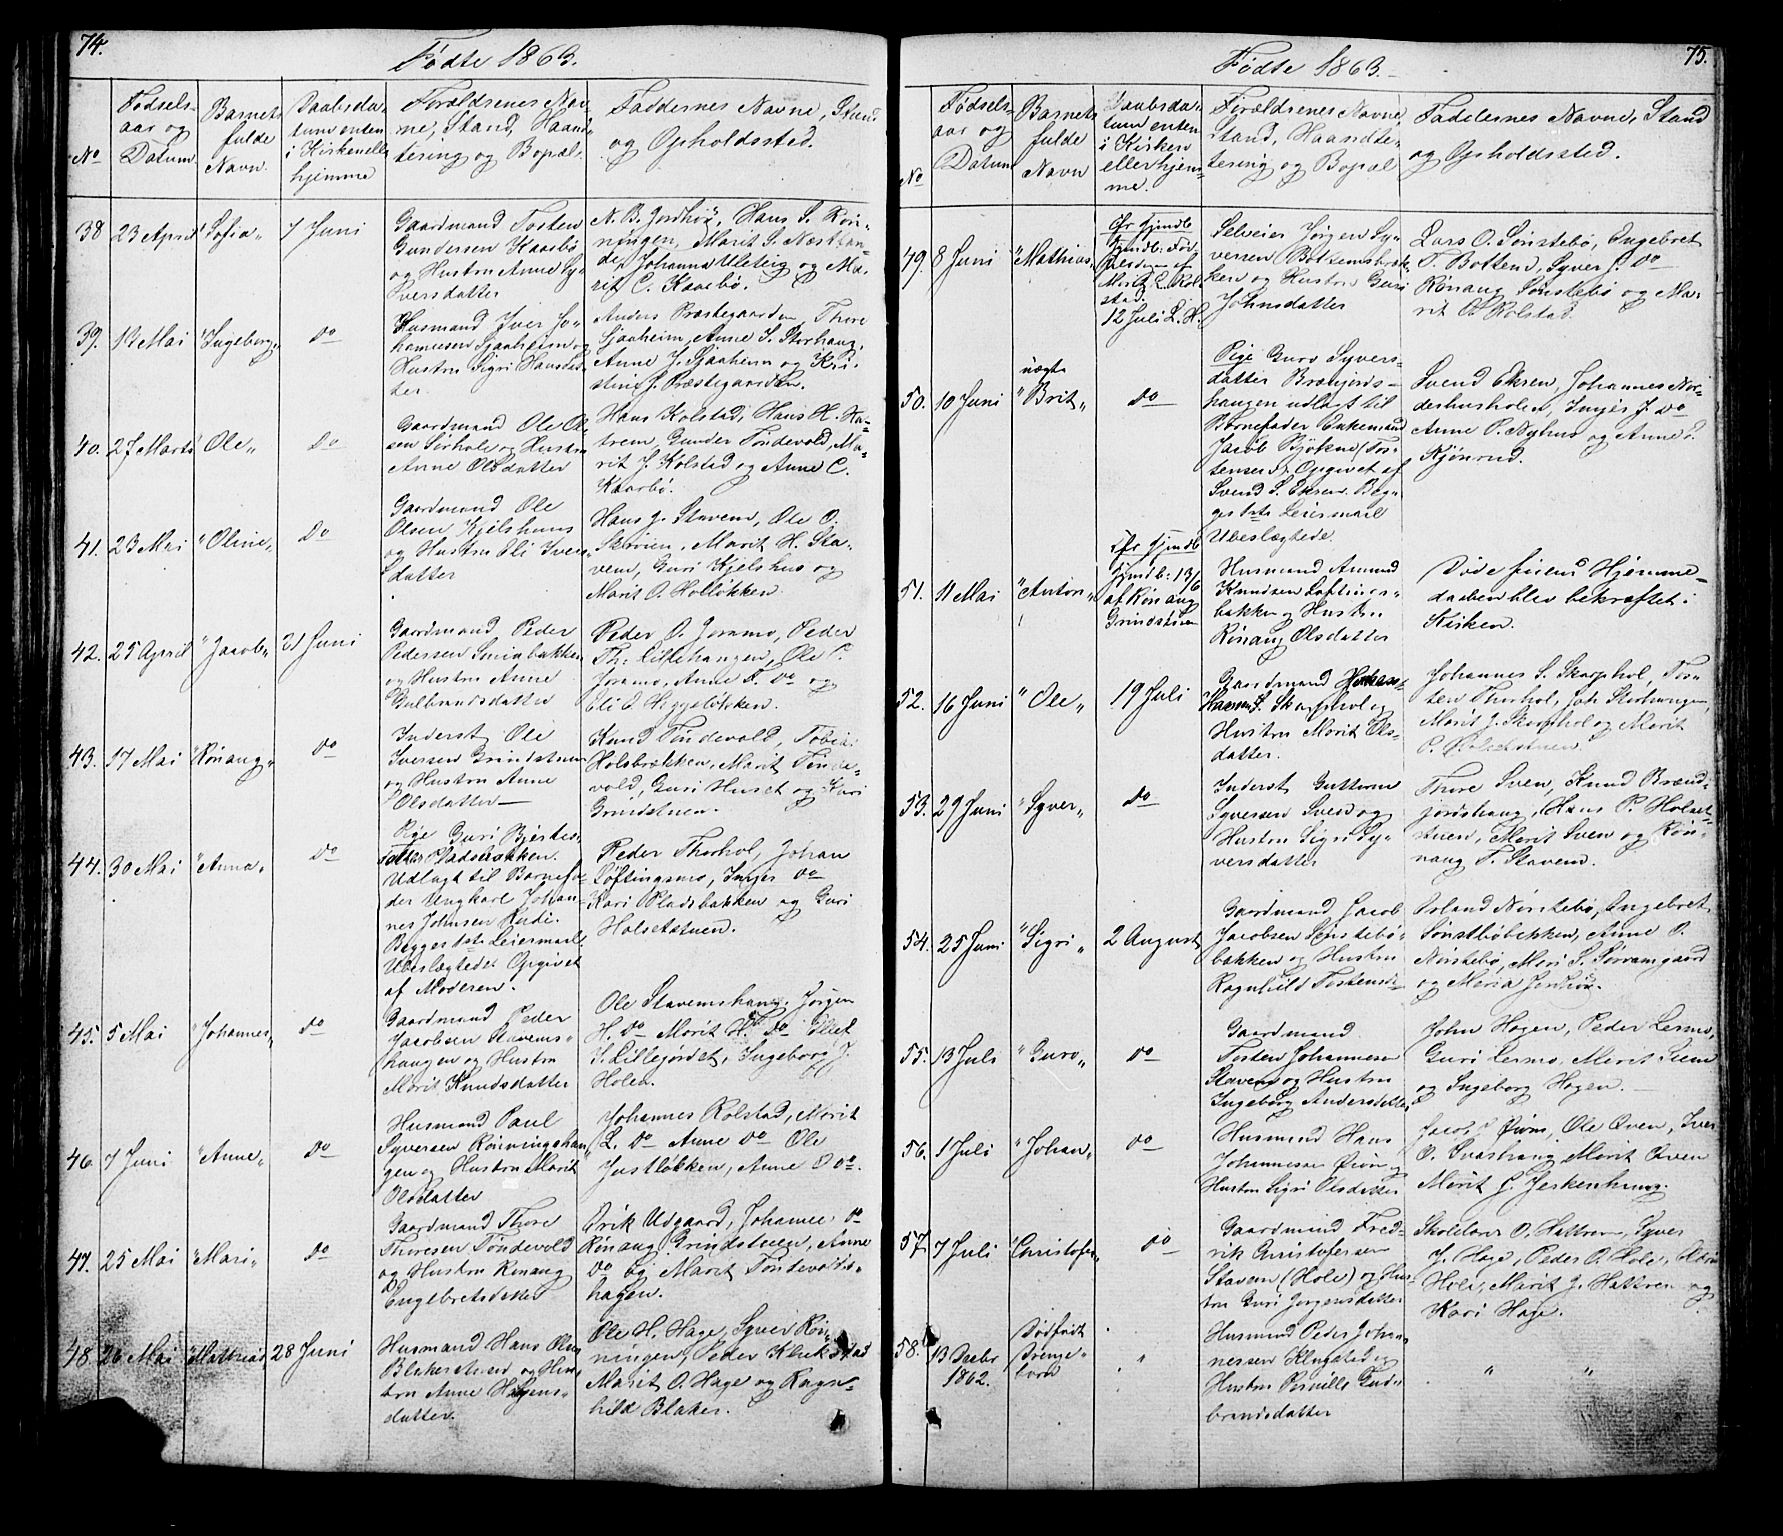 74.
Fødte 1863.
No
Fødsels-
aar og
Datum
Barnets
fulde
Navn.
Daabsda-
tum enten
i Kirken ell.
hjemme
Forældrenes Nav-
ne, Stand, Haand-
tering og Bopæl.
Faddernes Navne, Stand
og Opholdssted.
38 23 April "Sofia" 7 Juni
Gaardmand Tosten
Gundersen Kaasbø
og Hustru Anne Sy-
versdatter
N. B. Jordhøy, Hans S. Røn-
ningen, Marit S.
Johanna Uleteig og Ma-
rit C. Kaasbø.
39. Mai "Ingeborg" do
Husmand Iver Jo-
hannesen Sjaaheim og
Hustru Sigri Hansdat-
ter
Anders Præstegaarden, Thore
Sjaaheim, Anne S. Storhaug,
Anne J. Sjaaheim og Kri-
stine J. Præstegaarden.
40. 27 Marts Ole" do
Gaardmand Ole Ol-
sen og Hustru
Anne Olsdatter
Hans Kolstad, Hans H. Ha-
trem, Gunder Tøndevold, Ma-
rit J. Kolstad og Anne C.
Kaasbø.
41. 23 Mai "Oline" do
Gaardmand Ole
Olsen Kjelshuus
og Hustru Eli Ivers-
datter
Hans J. Stavem, Ole O.
Skotien, Marit H. Sta-
vem, Guri Kjelshus og
Marit O. Holløkken.
42. 25 April "Jacob" 21 Juni
Gaardmand Peder
Pedersen Smiubakken
og Hustru Anne
Gulbrandsdatter
Peder O. Joramo, Peder
Th. Lillehaugen, Ole P.
Joramo, Anne T. do og
Eli O. Heggeløkken.
43. 17 Mai "Rønaug" do
Inderst Ole
Iversen Grindstuen
og Hustru Anne
Olsdatter
Knud Tøndevold, Tobias
Holsbrækken, Marit Tønde-
vold, Guri Huset og Kari
Grindstuen.
44. 30 Mai "Anna" do
Pige Guri Bjørns-
datter Pladsbakken.
Udlagt til Barnefa-
der Ungkarl Johan-
nes Johnsen Rudi.
Begges 1ste Leiermaal.
Ubeslægtede. Opgivet
af Moderen.
Peder Thorhol, Johan
Løftingsmo, Inger do
Kari Pladsbakken og Guri
Holsetstuen.
45. 5 Mai "Johannes" do
Gaardmand Peder
Jacobsen Stavems-
haugen og Hustru
Marit Knudsdatter
Ole Stavemshaug, Jørgen
H. do Marit H. do Ellef
T. Lillejordet, Ingeborg J.
Holen.
46. 7 Juni "Anne" do
Husmand Paul
Syversen Rønningshau-
gen og Hustru Marit
Olsdatter
Johannes Kolstad, Marit
L. do Anne do Ole
Jostløkken, Anne O do.
47. 25 Mai "Mari" do
Gaardmand Thore
Thoresen Tøndevold
og Hustru Rønaug
Engebretsdatter
Erik Udgaard, Johanne do
Rønaug Grindstuen, Anne
do og Marit Tøndevolds-
hagen.
48. 26 Mai "Mathias 28 Juni
Husmand Hans Olsen
Blekerstuen og Hus-
tru Anne Hagens-
datter.
Ole H. Hage, Syver Røn-
ningen, Peder Klukstad
Marit O. Hage og Ragn-
hild Blaker.
75.
Fødte 1863.
No
Fødsels-
aar og
Datum
Barnets
fulde
Navn
Daabsda-
tum enten
i Kirken
eller hjem-
me.
Forældrenes Navne,
Stand, Haandte-
ring og Bopæl
Faddernes Navne, Stand
og Opholdssted.
49. 8 Juni "Mathias,
12 Juli L. H.
Selveier Jørgen Sy-
versen Bottemsbræk-
ken og Hustru Guri
Johnsdatter
Lars O. Sønstebø, Engebret
T. Bottem, Syver J. do
Rønaug Sønstebø og Ma-
rit O. Kolstad.
50. 10 Juni
uægte
"Brit" do
Pige Guro Syvers-
datter Brænjords-
haugen udlagt til
Barnefader Enkemand
Jacob Bjøkne (Tos-
tensen). Opgivet af
Svend S. Eksen. Beg-
ges 1ste Leiermaal
Ubeslægtede.
Svend Eksen, Johannes Nor-
dershusholen, Inger J. do
Anne P. Nyhus og Anne J.
Kjønrud.
51. 11 Mai "Anton"
Hjemdb: 13/6
af Rønaug
Grindstuen
Husmand Amund
Knudsen Løftings-
bakken og Hustru
Rønaug Olsdatter
Døde førend Hjemme-
daaben blev bekræftet i
Kirken.
52. 16 Juni "Ole" 19 Juli
Gaardmand
Hans S. Skarphol og
Hustru Marit Ols-
datter.
Johannes S. Skarphol, Tos-
ten Thorhol, Joh. Storhaugen,
Marit J. Skarphol og Marit
P. Holsetstuen.
53. 29 Juni "Syver" do
Inderst Guttorm
Syversen Sveen og
Hustru Sigri Sy-
versdatter
Thore Sveen, Knud Brænd-
jordshaug, Hans P. Holset-
stuen, Marit Sveen og Røn-
naug T. Stavem.
54. 25 Juni "Sigri" 2 August
Gaardmand Jacob
Jacobsen Sønstebø-
bakken og Hustru
Ragnhild Tostensd-
Erland Nørstebø, Engebret
Sønstebøbakken, Anne O.
Nørstebø, Mari S. Sørramgaard
og Maria Jordhøi.
55. 13 Juli "Guro" do
Gaardmand
Tosten Johannesen
Stavem og Hustru
Ingeborg Andersdatter
John Hagen, Peder Lesmo,
Guri Lesmo, Marit Siem
og Ingeborg Hagen.
56. 1 Juli "Johan" do
Husmand Hans
Johannessen Øien og
Hustru Sigri Olsdatter
Jacob Øien, Ole Qven, Iver
O. Svashaug Marit Qven
Marit J. Jerkenhaug.
57. 7 Juli "Christofer" do
Gaardmand Fred-
rik Christofersen
Stavem (Hole) og Hus-
tru Guri Jørgensdatter
Skolelærer O. Hattrem, Syver
J. Hage, Peder O. Hole,
Hole, Marit J. Hattrem og
Kari Hage.
58. 13 Decbr
1862.
Dødfødt
Drenge-
barn "
Husmand Peder Johan-
nessen Klugstad og
Hustru Pernille Gud-
brandsdatter
" "